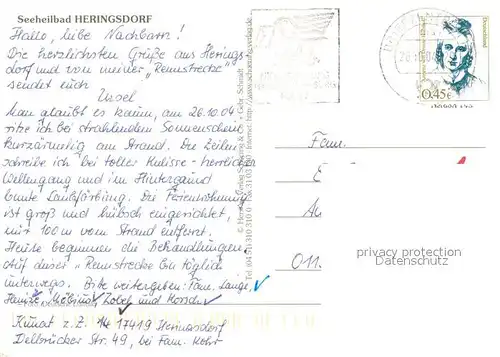 Seeheilbad HERINGSDORF
Hallo, liebe Nachbarn!
Die herzlichsten Grüße aus Herings-
dorf und von meiner "Rennstrecke"
sendet euch
Ursel
Man glaubt es kaum, am 26.10.04
sitze ich bei strahlendem Sonnenschein
kurzärmelig am Strand. Die Zeilen
schreibe ich bei toller Kulisse - herrlicher
Wellengang und im Hintergrund
bunte Laubfärbung. Die Ferienwohnung
ist groß und hübsch eingerichtet,
nur 100 m vom Strand entfernt.
Heute beginnen die Behandlungen.
Auf dieser "Rennstrecke bin täglich
unterwegs. Bitte weitergeben: Fam. Lange,
Zobel und
z. Z. 17419 Heringsdorf
Delbrücker Str. 49, bei Fam.
0,45€
Fam.
E
A
011
privacy protection
Datenschutz